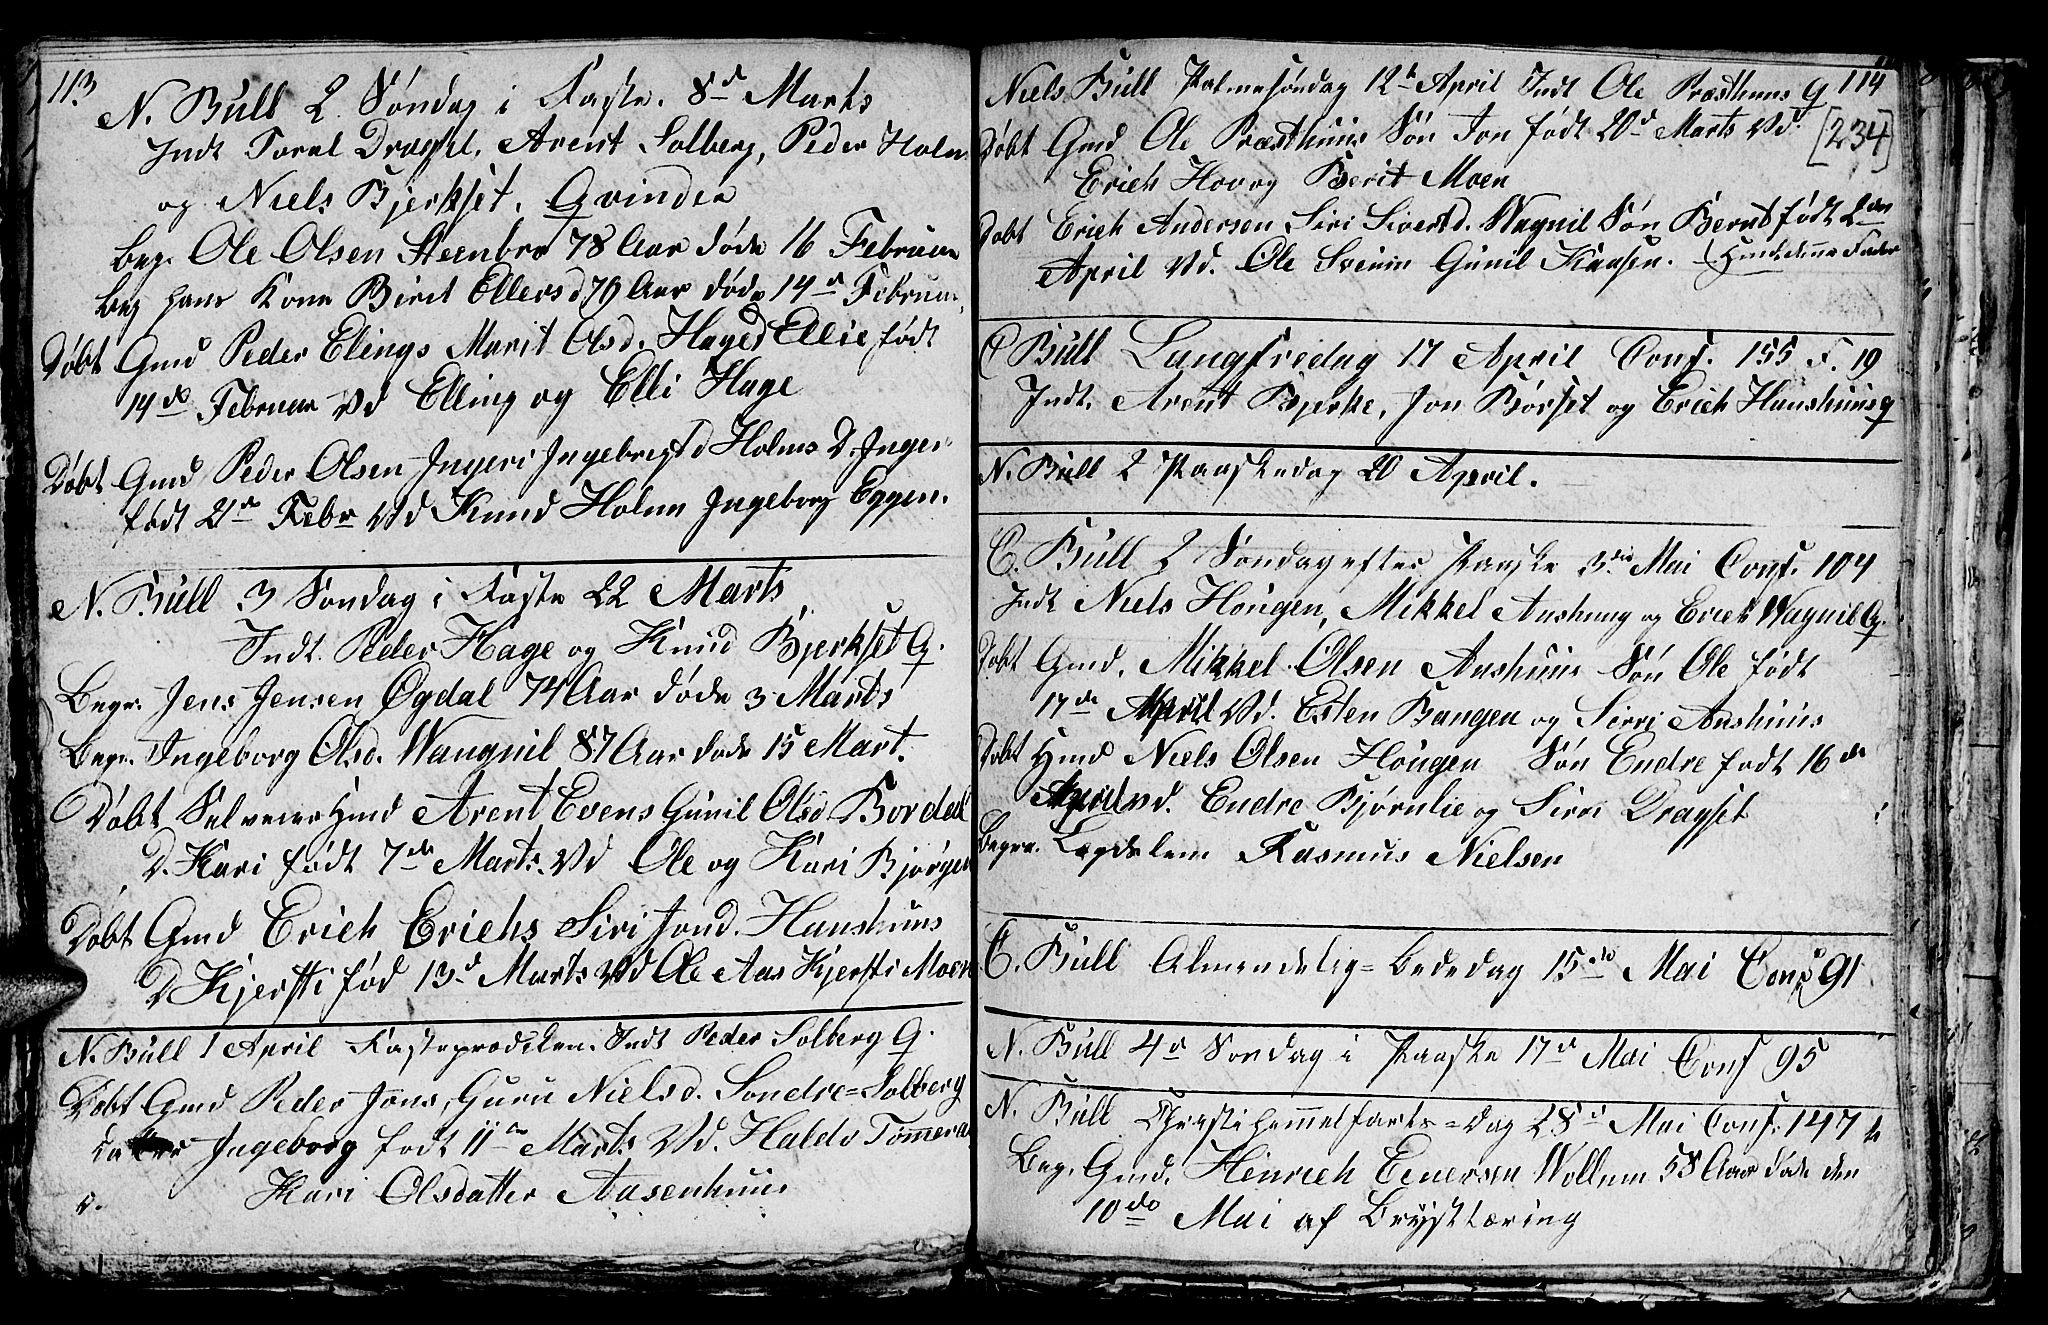 113
N. Bull 2 Söndag i Faste. 8d Marts
Indt Toral Dragset, Arent Solberg, Peder Holm
og Niels Bjerkset. Qvinder
Beg. Ole Olsen Steenbro 78 Aar döde 16 Februar
Beg hans Kone Birit Ellersd 76 Aar döde 14d Februar
Döbt Gmd Peder Elings Marit Olsd. Hages D Ellie født
14de Februar Vd Elling og Elli Hage
Döbt Gmd Peder Olsen Ingeri Ingebrigtsd Holms D. Inger
født 21de Febr Vd Knud Holm Ingeborg Eggen.
N. Bull 3 Söndag i Faste 22 Marts
Indt. Peder Hage og Knud Bjerkset Q.
Begr. Jens Jensen Øgdal 74 Aar döde 3 Marts
Begr. Ingeborg Olsd. Waugnil 87 Aar döde 15 Mart.
Döbt Selveier Hmd Arent Evens Gunil Olsd Bordal
D. Kari født 7de Marts. Vd Ole og Kari Bjørgen
Döbt Gmd Erich Erichs Siri Jond. Hanshuus
D Kjersti fød 13d Marts Vd Ole Aas Kjersti Moen
N. Bull 1 April Fasteprædiken. Indt Peder Solberg Q.
Döbt Gmd Peder Jons, Guru Nielsd. Söndre=Solberg
Ingeborg født 11te Marts Vd. Haldo Tömmeraa
Kari Olsdatter Aasenhuus
Niels Bull Palmesöndag 12te April Indt Ole Præsthuus Q 114
[234]
Döbt Gmd Ole Præsthuus Sön Jon født 20d Marts Vd.
Erich Hov og Berit Moen
Döbt Erich Andersen Siri Sivertsd. Wagnil Sön Bernt født 2den
April Vd. Ole Sveum Gunil Kaasen.
C Bull Langfredag 17 April Conf. 155 F. 19
Indt. Arent Bjerke, Jon Börset og Erich Hanshuus Q
N. Bull 2 Paaskedag 20 April.
C. Bull 2 Söndag efter Paaske 3die Mai Conf. 104
Indt Niels Hougen, Mikkel Aushuug og Erich Wagnil Q.
Döbt Gmd. Mikkel Olsen Aushuus Sön Ole født
17de April Vd. Esten Bangen og Sirri Aushuus
Döbt Hmd Niels Olsen Hougen Sön Endre født 16de
April vd. Endre Bjørnlie og Sirri Dragset
Begra. Lægdslem Rasmus Nielsen
C. Bull Almendelig=Bededag 15de Mai Conf 91
N. Bull 4d Söndag i Paaske 17d Mai Conf 95
N. Bull Christi himmelfarts=Dag 28d Mai Conf. 147
Beg. Gmd. Hinrich Einersen Wollum 58 Aar döde den
10de Mai af Brysttæring